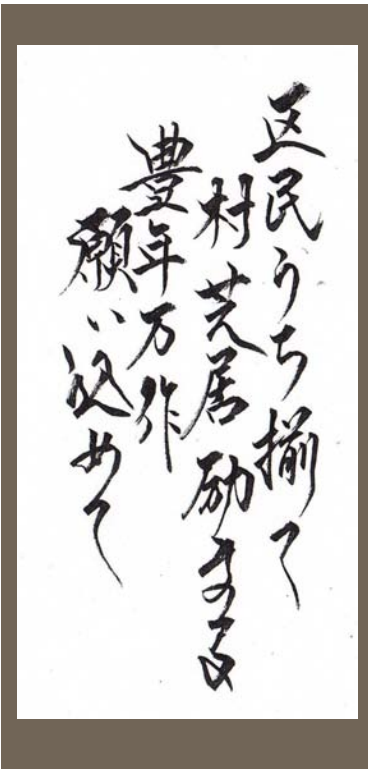 区民うち揃て
村芝居励
豊年万作
願い込めて